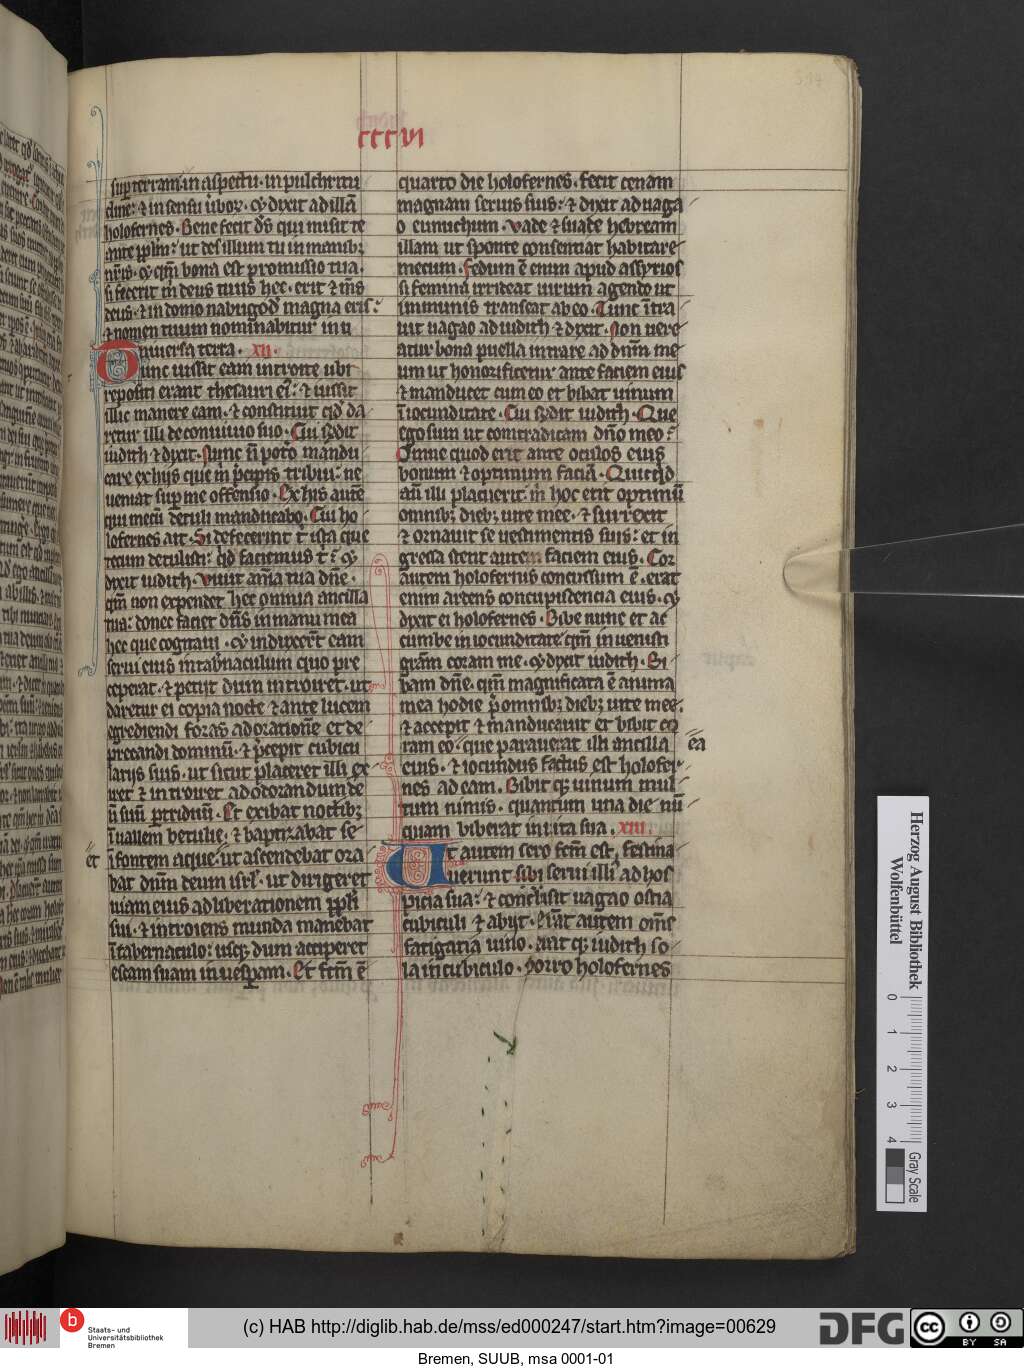 cccvi
sup terram in aspectu · in pulchritu
dine: ⁊ in sensu ūboꝝ · ⁊ dixit ad illā
holofernes · Bene fecit dꝰ qui misit te
ante pplm̄: ut des illum tu in manibꝫ
nr̄is · ⁊ qm̄ bona est promissio tua ·
si fecerit m̄ deus tuus hec · erit ⁊ mꝰ
deus · ⁊ in domo nabugod̄ magna eris ·
⁊ nomen tuum nominabitur in u
niuersa terra · xii ·
Tunc iussit eam introire ubi
repositi erant thesauri eiꝰ: ⁊ iussit
illic manere eam · ⁊ constituit qd̄ da
retur illi de conuiuio suo · Cui r̄ndit
iudith ⁊ dixit · Nunc n̄ poto mandu
care ex hijs que m̄ p̄cipis tribui: ne
ueniat sup me offensio · Ex his autē
que mecū detuli manducabo · Cui ho
lofernes ait · Si defecerint t̄ ista que
tecum detulisti: qd̄ faciemus t̄: ⁊
dixit iudith · Viuit aīa tua dn̄e ·
qm̄ non expendet hec omnia ancilla
tua: donec faciet dn̄s in manu mea
hec que cogitaui · ⁊ induxer̄t eam
serui eius in tab̄naculum quo pre
ceperat · ⁊ petijt dum introiret · ut
daretur ei copia nocte ⁊ ante lucem
egrediendi foras ad orationē et de
precandi dominū · ⁊ p̄cepit cubicu
larijs suis · ut sicut placeret illi ex
iret ⁊ introiret ad odorandum de
ū suū ꝑ triduū · Et exibat noctibꝫ
ī uallem betulie · ⁊ baptizabat se
et
ī fontem aque · ut ascendebat ora
bat dn̄m deum isrl̄ · ut dirigeret
uiam eius ad liberationem ppl̄i
sui · ⁊ introiens munda manebat
ī tabernaculo: usqꝫ dum acciperet
escam suam in uesꝑam · Et fc̄m ē
quarto die holofernes · fecit cenam
magnam seruis suis: ⁊ dixit ad uaga
o eunuchum · Vade ⁊ suade hebream
illam ut sponte consentiat habitare
mecum · Fedum ē enim apud assyrios
si femina irrideat uirum agendo ut
inmunis transeat ab eo · Tunc ītra
uit uagao ad iudith ⁊ dixit · Non uere
atur bona puella intrare ad dn̄m me
um ut honorificetur ante faciem eius
⁊ manducet cum eo et bibat uinum
ī iocunditate · Cui r̄ndit iudith · Que
ego sum ut contradicam dn̄o meo:
Omne quod erit ante oculos eius
bonum ⁊ optimum faciā · Quicqd̄
aū illi placuerit: m̄ hoc erit optimū
omnibꝫ diebꝫ uite mee · ⁊ surrexit
⁊ ornauit se uestimentis suis: et in
gressa stetit autem faciem eius · Cor
autem holofernis concussum ē · erat
enim ardens concupiscencia eius · ⁊
dixit ei holofernes · Bibe nunc et ac
cumbe in iocunditate · qm̄ inuenisti
grām coram me · ⁊ dixit iudith · Bi
bam dn̄e · qm̄ magnificata ē anima
mea hodie p̄ omnibꝫ diebꝫ uite mee ·
⁊ accepit ⁊ manducauit et bibit co
ram eo · que parauerat illi ancilla
ea
eius · ⁊ iocundus factus est holofer
nes ad eam · Bibit qꝫ uinum mul
tum nimis · quantum una die nū
quam biberat in uita sua · xiii ·
Ut autem sero fc̄m est · festina
uerunt sibi serui illi ad hos
picia sua: ⁊ conclusit uagao ostia
cubiculi ⁊ abijt · Erāt autem om̄s
fatigati a uino · erat qꝫ iudith so
la in cubiculo · Porro holofernes
Herzog August Bibliothek
Wolfenbüttel
0 1 2 3 4
Gray Scale
b
Staats- und
Universitätsbibliothek
Bremen
(c) HAB http://diglib.hab.de/mss/ed000247/start.htm?image=00629
DFG
cc
BY SA
Bremen, SUUB, msa 0001-01